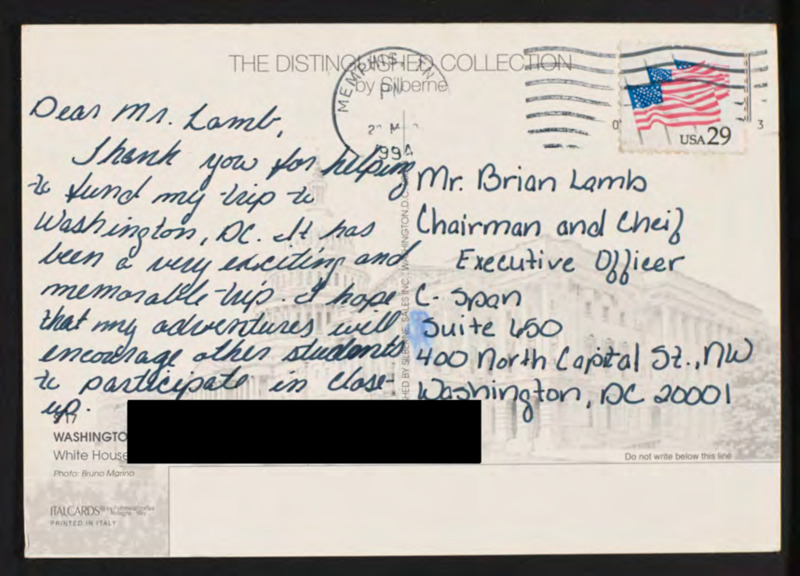 THE DISTINGUISHED COLLECTION
by Silberne
MEMPHIS, TN
PM
1994
USA 29
Dear Mr. Lamb,
Thank you for helping
to fund my trip to
Washington, DC. It has
been a very exciting and
memorable trip. I hope
that my adventures will
encourage other students
to participate in Close-
up.
Mr. Brian Lamb
Chairman and Cheif
Executive Officer
C-Span
Suite 650
400 North Capital St., NW
Washington, DC 20001
SILBERNE SALES INC. WASHINGTON, D.C.
WASHINGTO
White House
Photo: Bruno Marino
Do not write below this line
ITALCARDS
PRINTED IN ITALY